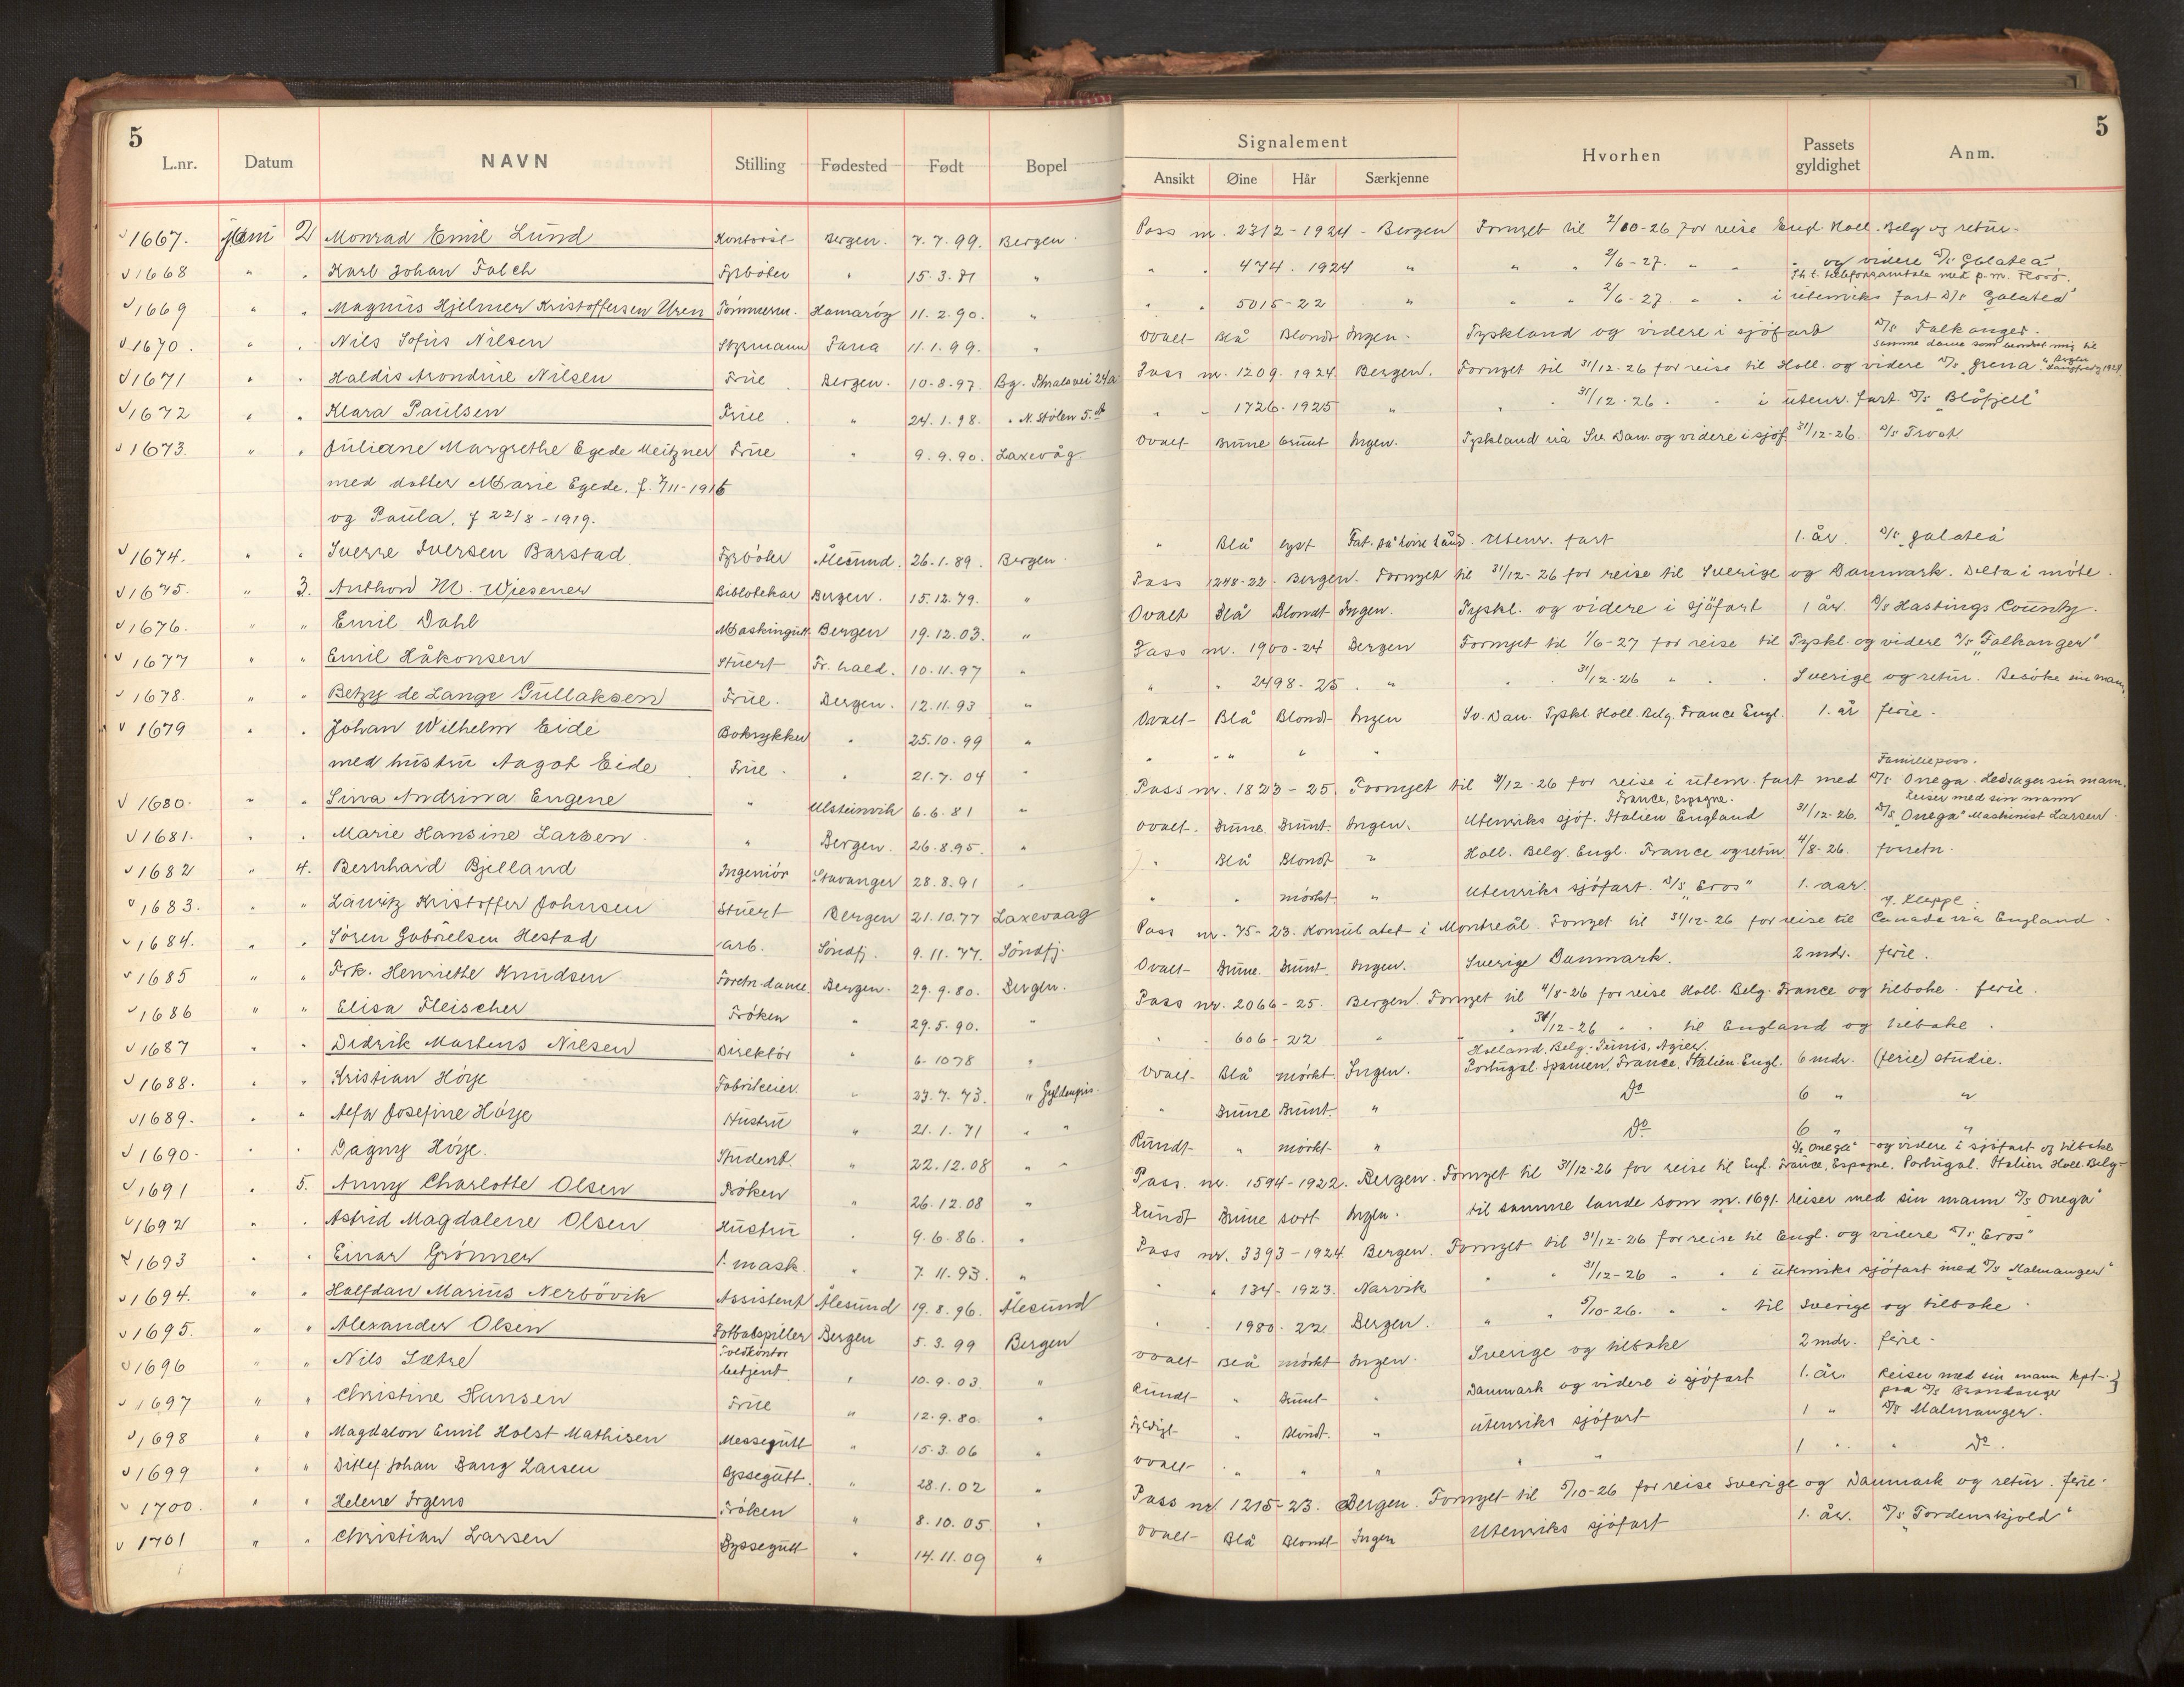 5
L.nr. Datum NAVN Stilling Fødested Født Bopel
1667. Juni 2 Monrad Emil Lund Kontorist Bergen. 7.7.99. Bergen
1668 " " Karl Johan Falch Fyrbøter " 15.3.71 "
1669 " " Magnus Hjelmer Kristoffersen Uren Tømmerm. Hamarøy 11.2.90. "
1670. " " Nils Sofus Nilsen Styrmann Fana 11.1.99. "
1671 " " Haldis Arondine Nilsen Frue Bergen. 10-8-97. Bg. 24a
1672 " " Klara Paulsen Frue " 24.1.98. " N. Stølen 5.
1673. " " Juliane Margrethe Egede Meitzner Frue " 9.9.90. Laxevåg.
med datter Marie Egede. f. 7/11-1916
og Paula, f 22/8-1919.
1674. " " Sverre Iversen Barstad Fyrbøter Ålesund. 26.1.89. Bergen.
1675. " 3. Anthon M. Wiesener Bibliotekar Bergen. 15.12.79. "
1676. " " Emil Dahl Maskingutt. Bergen 19.12.03. "
1677 " " Emil Håkonsen Stuert Fr.hald. 10.11.97 "
1678. " " Betzy de Lange Gullaksen Frue. Bergen. 12.11.93 "
1679 " " Johan Wilhelm Eide Boktrykker " 25.10.99 "
med hustru Aagot Eide Frue " 21.7.04 "
1680. " " Sina Andrina Eugene " Ulsteinvik 6.6.81 "
1681. " " Marie Hansine Larsen " Bergen. 26.8.95. "
1682 " 4. Bernhard Bjelland Ingeniør Stavanger 28.8.91 "
1683. " " Lauritz Kristoffer Johnsen Stuert Bergen 21.10.77 Laxevaag
1684. " " Søren Gabrielsen Hestad arb. Søndfj. 9.11.77. Søndfj.
1685 " " Frk. Henriette Knudsen Forretn.dame. Bergen. 29.9.80. Bergen.
1686 " " Elisa Fleischer Frøken " 29.5.90. "
1687 " " Didrik Martens Nilsen Direktør " 6-1078 "
1688. " " Kristian Høye Fabrikeier " 27.7.73. "
1689. " " Alfa Josefine Høye Hustru " 21.1.71 " "
1690. " " Dagny Høye. Student. " 22.12.08 " "
1691 " 5. Anny Charlotte Olsen Frøken " 26.12.08 "
1692 " " Astrid Magdalene Olsen Hustru " 9.6.86. "
1693 " " Einar Grønner 1. mask. " 7.11.93. "
1694. " " Halfdan Marius Nerbøvik Assistent Ålesund 19.8.96. Ålesund
1695. " " Alexander Olsen Fotballspiller Bergen 5.3.99 Bergen
1696 " " Nils Sætre Toldkontor betjent. " 10.9.03. "
1697 " " Christine Hansen Frue " 12.9.80. "
1698 " " Magdalon Emil Holst Mathisen Messegutt " 15.3.06 "
1699 " " Ditlef Johan Bang Larsen Byssegutt. " 28.1.02 "
1700. " " Helene Irgens Frøken " 8.10.05 "
1701 " " Christian Larsen Byssegutt " 14.11.09 "
5
Signalement Hvorhen Passets gyldighet Anm.
Ansikt Øine Hår Særkjenne
Pass nr. 2312-1924 - Bergen Fornyet til 2/10-26 for reise Engl. Holl. Belg og retur.
" " 474. 1924 " " " 2/6-27. " " " og videre D/S Galatea"
Ih.t. telefonsamtale med p.m. Florø.
" " 5015-22 " " " 2/6-27. " " i utenriks fart D/S Galatea"
Ovalt Blå Blondt Ingen. Tyskland og videre i sjøfart D/S Falkanger.
samme dame som
Pass nr. 1209. 1924. Bergen. Fornyet til 31/12-26 for reise til Holl. og videre D/S "Grena"
" " 1726. 1925 " " " 31/12-26. " i utenr. fart. D/S "Blåfjell"
Ovalt Brune brunt Ingen. Tyskland via Sv. Dan. og videre i sjøf. 31/12-26. D/S
" Blå lyst Tat. på høire hånd. Utenr. fart 1. år. D/S "Galatea"
Pass 1248-22. Bergen. Fornyet til 31/12-26 for reise til Sverige og Danmark. Delta i møte.
Ovalt Blå Blondt Ingen. Tyskl. og videre i sjøfart 1 år. D/S Hastings County.
Pass nr. 1900-24 Bergen Fornyet til 1/6-27 for reise til Tyskl. og videre D/S "Falkanger"
" " 2498-25. " " " 31/12-26 " " " Sverige og retur. Besøke sin mann.
Ovalt Blå Blondt Ingen Sv. Dan. Tyskl. Holl. Belg. France Engl. 1. år ferie.
" " " " "
Familiepass.
Pass nr. 1823-25. Fornyet til 31/12-26 for reise i utenr. fart med D/S Onega. Ledsager sin mann.
France, Espagne. Reiser med sin mann
Ovalt. Brune Brunt. Ingen. Utenriks sjøf. Italien England 31/12-26. D/S "Onega" Maskinist Larsen.
" Blå Blondt " Holl. Belg. Engl. France og retur 4/8-26. forretn.
" " mørkt " Utenriks sjøfart. D/S "Eros" 1. aar.
Pass nr. 75-23. Konsulatet i Montreal. Fornyet til 31/12-26 for reise til Canada via England.
Ovalt Brune. Brunt. Ingen. Sverige Danmark. 2 mdr. ferie.
Pass nr. 2066-25. Bergen. Fornyet til 4/8-26 for reise Holl. Belg. France og tilbake. ferie.
" " 606-22 " " " 31/12-26 " " til England og tilbake.
Holland, Belg. Tunis, Agier.
Ovalt. Blå mørkt Ingen. Portugal. Spanien, France, Italien. Engl. 6 mdr. (ferie) studie.
" Brune Brunt. " Do 6 " "
Rundt " mørkt " Do 6 " "
D/S Onega" og videre i sjøfart og tilbake
Pass. nr. 1594-1922. Bergen. Fornyet til 31/12-26 for reise til Engl. France, Espagne, Portugal. Italien Holl. Belg.
Rundt Brune sort Ingen. til samme lande som nr. 1691. reiser med sin mann D/S Onega"
Pass nr. 3393-1924. Bergen. Fornyet til 31/12-26 for reise til Engl. og videre D/S "Eros"
" " 134-1923. Narvik " " 31/12-26 " " i utenriks sjøfart med D/S "Malmanger"
" " 1980-22 Bergen. " " 5/10-26. " " til Sverige og tilbake.
Ovalt Blå mørkt Ingen. Sverige og tilbake 2 mdr. ferie.
Rundt " Brunt " Danmark og videre i sjøfart 1. år. Reiser med sin mann kpt.
paa D/S Brandanger
Fyldigt " Blondt. " utenriks sjøfart 1 " D/S Malmanger.
Ovalt " " " " " 1 " " Do.
Pass nr 1215-23. Bergen. Fornyet til 5/10-26 for reise Sverige og Danmark og retur. ferie.
Ovalt Blå Blondt Ingen Utenriks sjøfart 1. år. D/S "Tordenskjold"